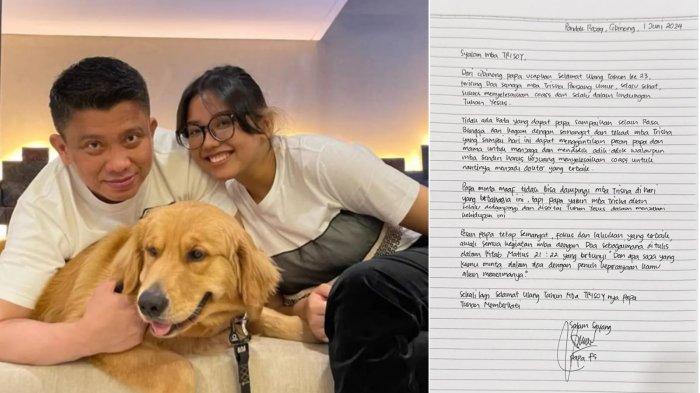 Pondok Rajeg, Cibinong, 1 Juni 2024
Syalom mba TRISOY,
Dari cibinong papa ucapkan Selamat Ulang Tahun ke 23,
iringan Doa semoga mba Trisha Panjang umur, selalu sehat,
sukses menyelesaikan coass dan selalu dalam lindungan
Tuhan Yesus.
Tidak ada kata yang dapat papa sampaikan selain Rasa
Bangga dan kagum dengan semangat dan tekad mba Trisha
yang sampai hari ini dapat menggantikan peran papa dan
mama untuk menjaga dan mendidik adik-adik walaupun
mba sendiri harus berjuang menyelesaikan coass untuk
nantinya menjadi dokter yang terbaik.
Papa minta maaf tidak bisa dampingi mba Trisha di hari
yang berbahagia ini, tapi papa yakin mba Trisha akan
selalu didampingi dan disertai Tuhan Yesus dalam
kehidupan ini
Pesan papa tetap semangat, fokus dan lakukan yang terbaik,
awali semua kegiatan mba dengan Doa sebagaimana ditulis
dalam kitab Matius 21 : 22 yang bertunyi "Dan apa saja yang
kamu minta dalam doa dengan penuh kepercayaan kamu
akan menerimanya."
Sekali lagi Selamat Ulang Tahun Mba TRISOY nya Papa
Tuhan Memberkati
Salam Sayang
Papa FS